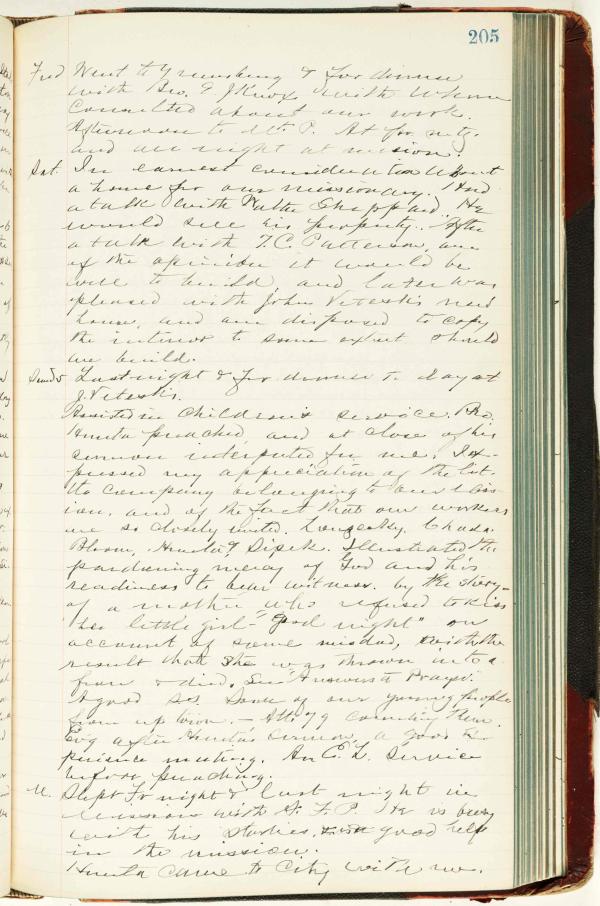 205
Fred Went to Greensburg & for dinner
with Bro. F J Knox with whom
Consulted about our work.
Afternoon to Mt. P. At for mtg.
and all night at mission.
Sat. In earnest consideration about
a home for our missionary. Had
a talk with Shappard. He
would see his property. After
a talk with F. C. Patterson, am
of the opinion it would be
well to build, and later was
pleased with John Veteskis new
house, and am disposed to copy
the interior to some extent should
we build.
Last night & for dinner to day at
J. Veteskis.
Assisted in Children's service. Bro.
preached, and at close of his
sermon interpreted for me. I ex-
pressed my appreciation of the lit-
tle company belonging to our miss-
ion, and of the fact that our workers
are so closely united.
Bloom, & Illustrated the
pardoning mercy of God and his
readiness to bear witness. by the story
of a mother who refused to kiss
her little girl "good night" on
account of some misdad, with the
result that she was thrown into a
& died. See Answers to Prayer.
A good SS. Some of our young people
from up town. - Att. 79 counting them.
Ev'g after sermon, a good ex-
perience meeting. An E. L. Service
before preaching.
M. Slept Fr night & last night in
Mission with He is busy
with his studies, good help
in the mission.
came to City with me.